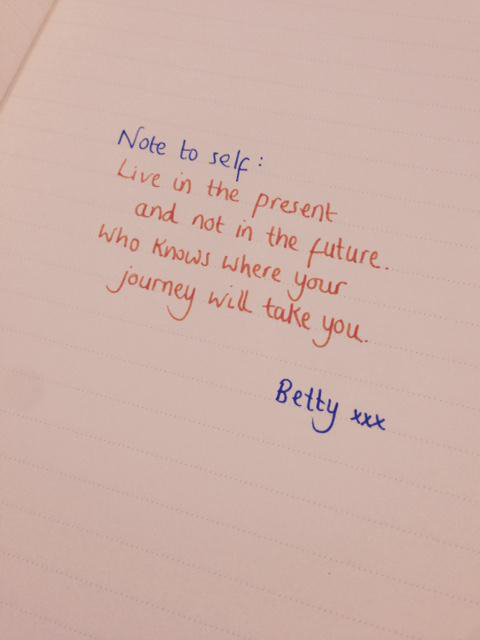 Note to self:
Live in the present
and not in the future.
Who knows where your
journey will take you.
Betty xxx